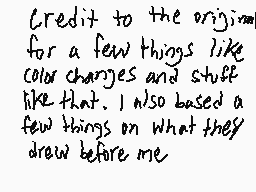 Credit to the origina
for a few things like
color changes and stuff
like that. I also based a
few things on what they
drew before me